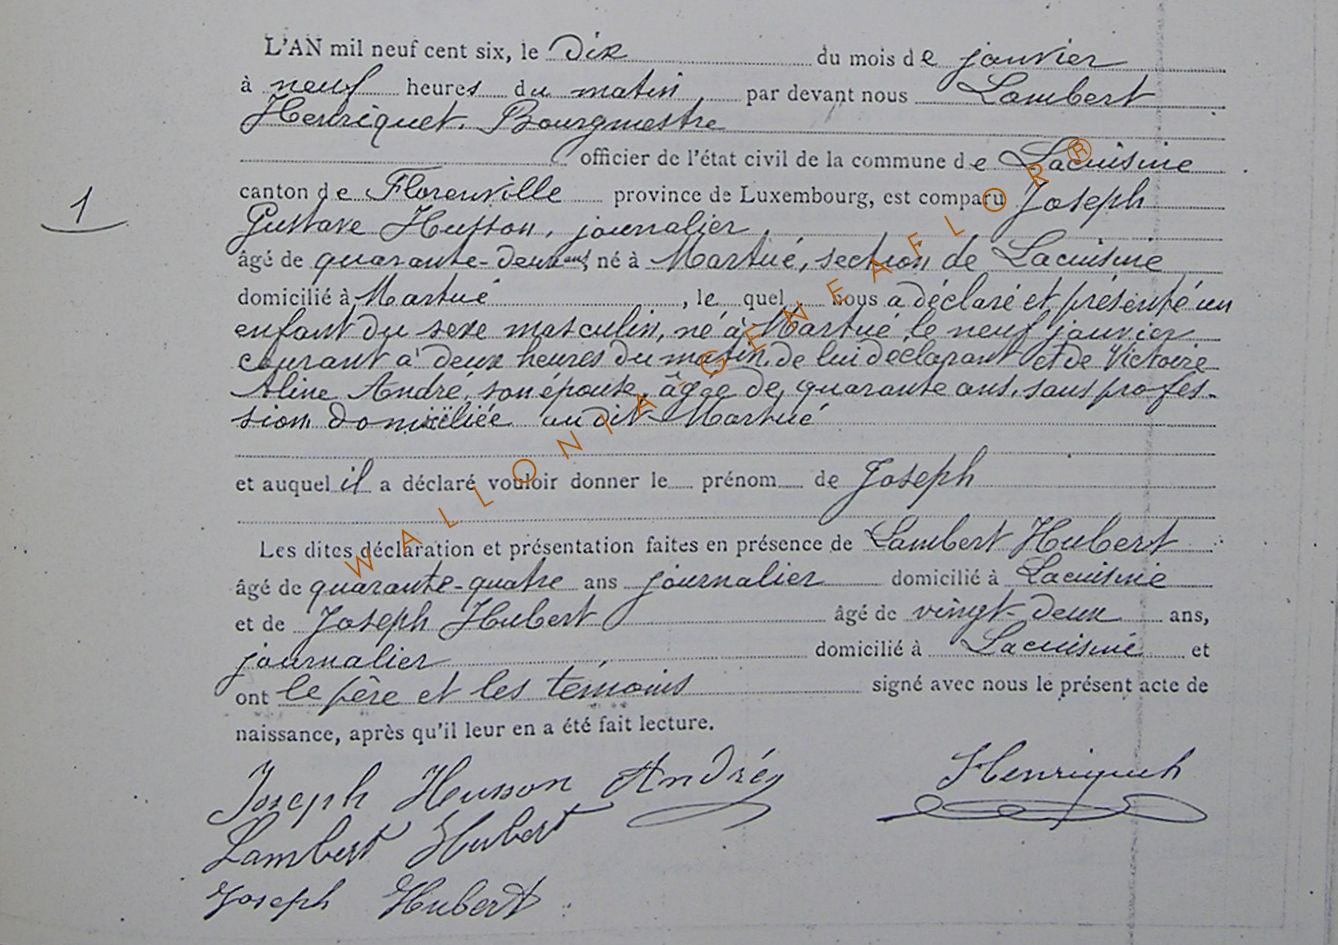 L'AN mil neuf cent six, le dix du mois de janvier
à neuf heures du matin, par devant nous Lambert
Henriquet, Bourgmestre
officier de l'état civil de la commune de Lacuisine
1
canton de Florenville province de Luxembourg, est comparu Joseph
Gustave Husson, journalier,
âgé de quarante-deux ans, né à Martué, section de Lacuisine
domicilié à Martué, le quel nous a déclaré et présenté un
enfant du sexe masculin, né à Martué, le neuf janvier
courant à deux heures du matin, de lui déclarant et de Victoire
Aline André, son épouse, âgée de quarante ans, sans profes-
sion, domiciliée audit Martué
et auquel il a déclaré vouloir donner le prénom de Joseph
Les dites déclaration et présentation faites en présence de Lambert Hubert
âgé de quarante-quatre ans journalier domicilié à Lacuisine
et de Joseph Hubert âgé de vingt-deux ans,
journalier domicilié à Lacuisine et
ont le père et les témoins signé avec nous le présent acte de
naissance, après qu'il leur en a été fait lecture.
Joseph Husson André Henriquet
Lambert Hubert
Joseph Hubert
WALLONIA-GENEAFLOR®